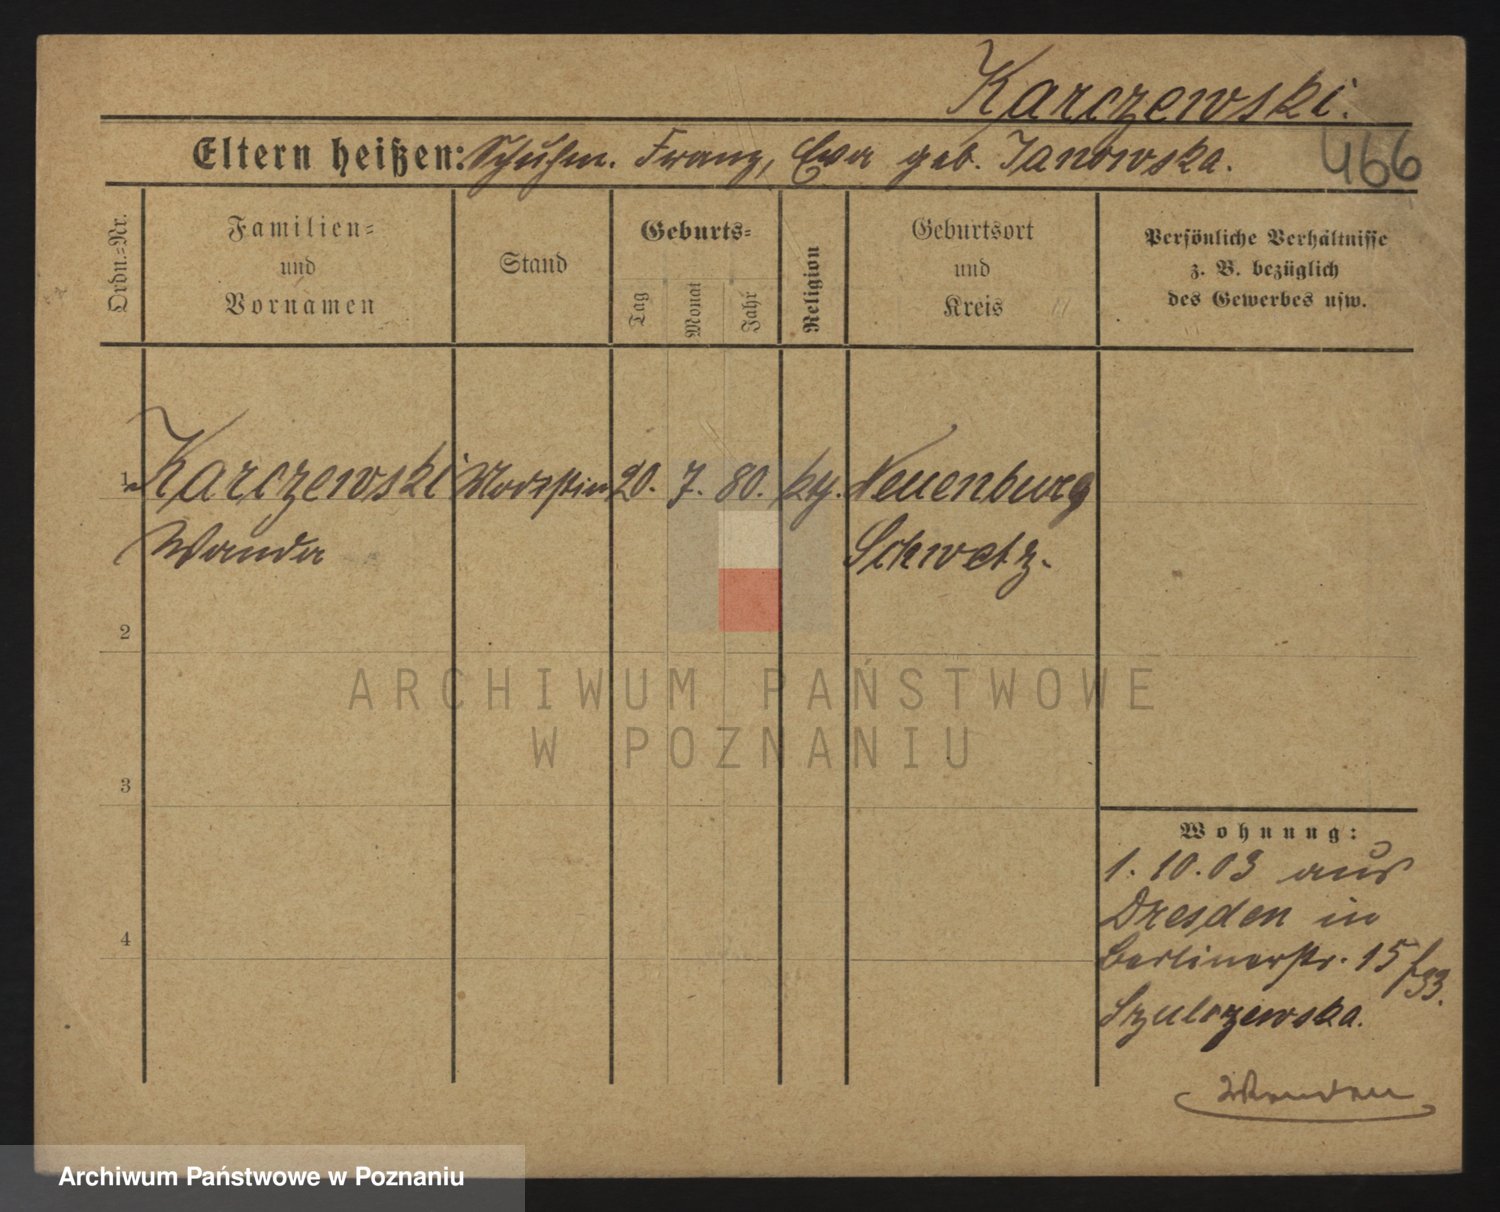 Karczewski.
Eltern heißen: Schuhm. Franz, Eva geb. Janowska.
466
Ordn.=Nr.
Familien= und Vornamen
Stand
Geburts=
Tag
Monat
Jahr
Religion
Geburtsort und Kreis
Persönliche Verhältnisse
z. B. bezüglich
des Gewerbes usw.
1 Karczewski Modistin 20. 7. 80. kth. Neuenburg
Wanda Schwetz.
2
3
4
Wohnung:
1. 10. 03 aus
Dresden in
Berlinerstr. 15
Szulczewska.
ARCHIWUM PAŃSTWOWE
W POZNANIU
Archiwum Państwowe w Poznaniu